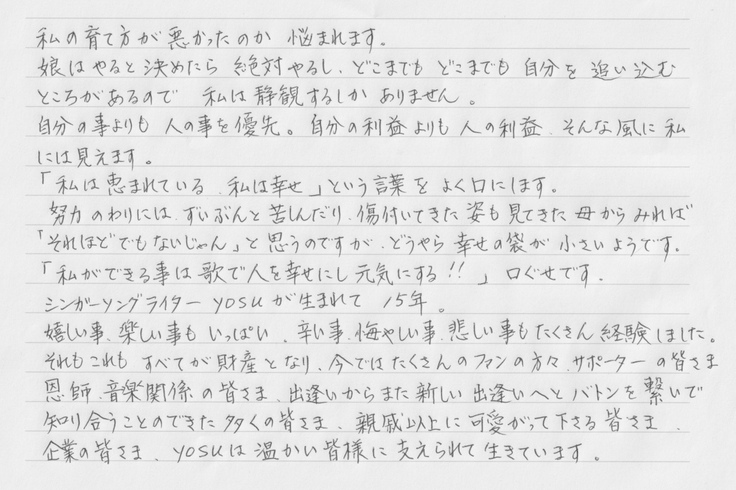 私の育て方が悪かったのか 悩まれます。
娘はやると決めたら 絶対やるし、どこまでも どこまでも 自分を 追い込む
ところがあるので 私は静観するしか ありません。
自分の事よりも 人の事を優先。自分の利益よりも 人の利益、そんな風に 私
には見えます。
「私は恵まれている、私は幸せ」という言葉を よく口にします。
努力のわりには、ずいぶんと苦しんだり、傷付いてきた姿も見てきた 母からみれば
「それほどでもないじゃん」と思うのですが、どうやら 幸せの袋が 小さいようです。
「私ができる事は歌で人を幸せにし元気にする!!」 口ぐせです。
シンガーソングライター YOSUが生まれて 15年。
嬉しい事、楽しい事も いっぱい、辛い事、悔やしい事、悲しい事もたくさん 経験しました。
それもこれも すべてが財産となり、今ではたくさんのファンの方々、サポーターの皆さま
恩師、音楽関係の皆さま、出逢いからまた新しい出逢いへとバトンを繋いで
知り合うことのできた多くの皆さま、親戚以上に可愛がって下さる皆さま、
企業の皆さま、YOSUは温かい皆様に支えられて生きています。